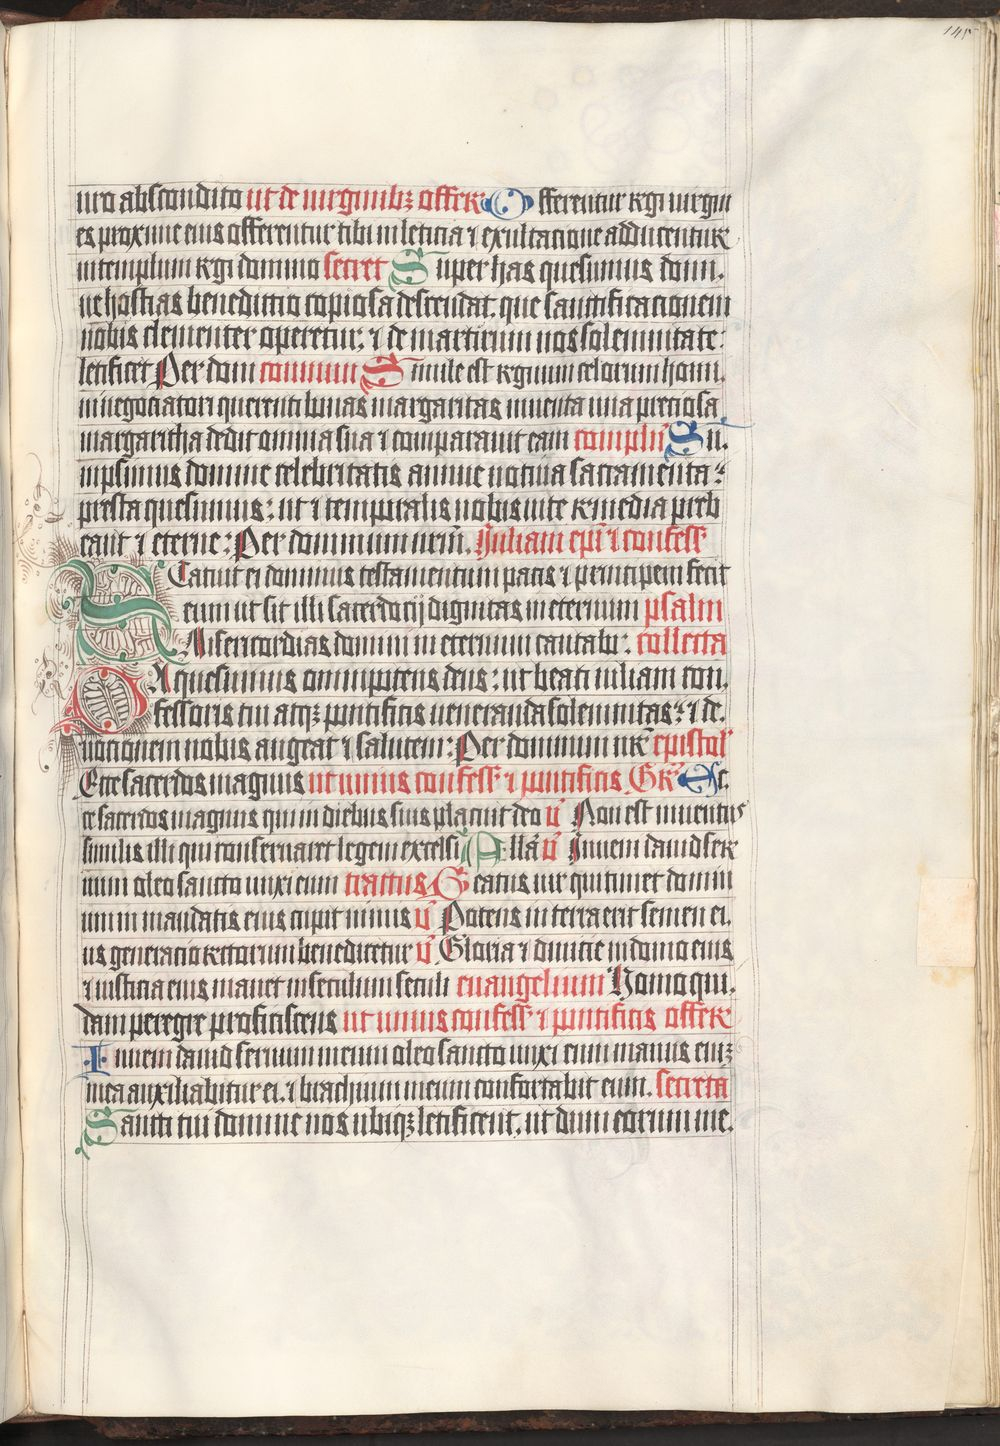 145
uro abscondito ut de virginibꝫ offer Offerentur regi virgin
es proxime eius offerentur tibi in leticia ⁊ exultacione adducentur
in templum regi domino secret Super has quesumus dom.
ne hostias benedictio copiosa descendat. que sanctificacionem
nobis clementer operetur, ⁊ de martirum nos solemnitate
letificet Per dom commun Simile est regnum celorum homi.
ni negociatori querenti bonas margaritas inventa una preciosa
margaritha dedit omnia sua ⁊ comparavit eam complen̄ Su.
mpsimus domine celebritatis annue votiva sacramenta
presta quesumus: ut ⁊ temporalis nobis vite remedia preb
eant ⁊ eterne: Per dominum nrm̄. Juliani ep̄i ⁊ confess
Statuit ei dominus testamentum pacis ⁊ principem fecit
eum ut sit illi sacerdocij dignitas in eternum psalm
Misericordias domini in eternum cantabo: collecta
Da quesumus omnipotens deus: ut beati iuliani con.
fessoris tui atqꝫ pontificis veneranda solemnitas: ⁊ de.
vocionem nobis augeat ⁊ salutem: Per dominum nr̄ epistol
Ecce sacerdos magnus ut unius confess ⁊ pontificis Gr̄ Ec.
ce sacerdos magnus qui in diebus suis placuit deo v̄ Non est inventus
similis illi qui conservaret legem excelsi Alla v̄ Inveni david ser
vum oleo sancto unxi eum tractus Beatus vir qui timet domin
um in mandatis eius cupit nimis v̄ Potens in terra erit semen ei.
us generacio rectorum benedicetur v̄ Gloria ⁊ divicie in domo eius
⁊ iusticia eius manet in seculum seculi evangelium Homo qui.
dam peregre proficiscens ut unius confess ⁊ pontificis offer
Inveni david servum meum oleo sancto unxi eum manus eniꝫ
mea auxiliabitur ei. ⁊ brachium meum confortabit eum. secreta
Sancti tui domine nos ubiqꝫ letificent, ut dum eorum me.